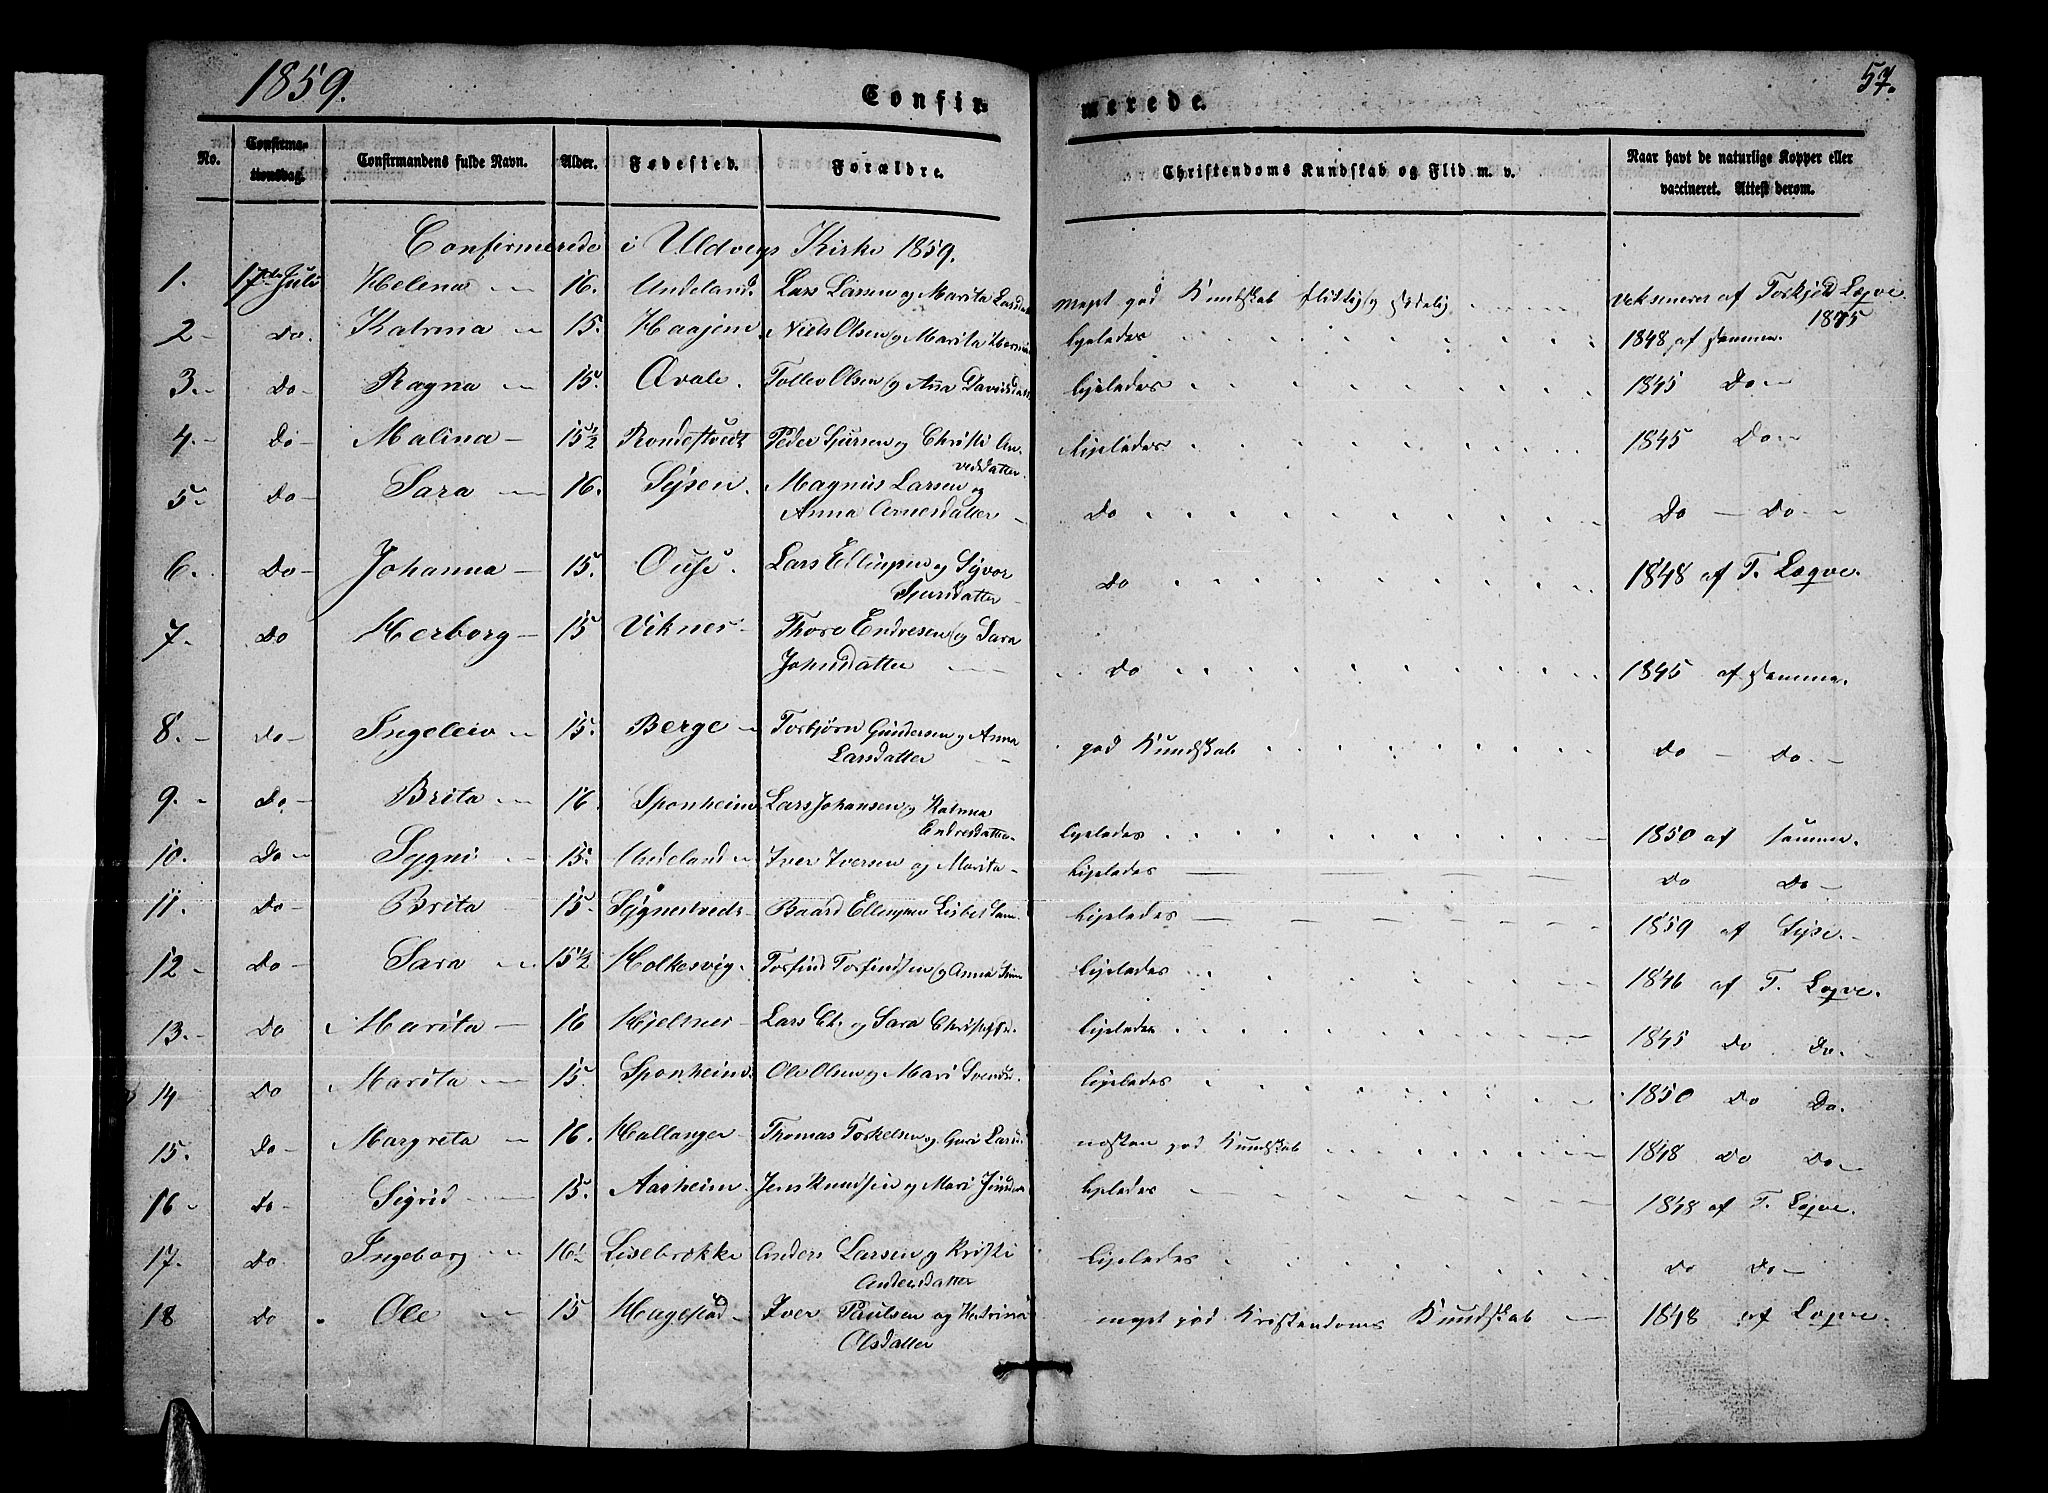 1859.
Confir-
merede.
57.
No.
Confirma-
tionsdag.
Confirmandens fulde Navn.
Alder.
Fødested.
Forældre.
Christendoms Kundskab og Flid m. v.
Naar havt de naturlige Kopper eller
vaccineret. Attest derom.
Confirmerede i Uldvigs Kirke 1859.
1. 17de Juli Helena 16. Undeland. Lars Larsen og Marita meget god Kundskab flittig og sædelig af Torkjeld Løqve
1845
2 Do. Katrina 15. Haajem Niels Olsen og Marita ligeledes 1848 af samme.
3. Do Ragna 15. Ovale. Tollev Olsen og Anna Davidsdatter ligeledes 1845 Do
4. Do Malina 15½ Rondestvedt Peder Sjursen og Christi An-
vedsdatter ligeledes 1845 Do
5. Do Sara 16. Sysen. Magnus Larsen og
Anna Arnesdatter Do Do Do
6. Do Johanna 15. Ouse. Lars Ellingsen og Syvor
Sjursdatter Do 1848 af T. Løqve.
7. Do Herborg 15 Viknes Thore Endresen og Sara
Johnsdatter Do 1845 af samme.
8. Do Ingeleiv 15. Berge Torbjørn Gundersen og Anna
Larsdatter god Kundskab Do Do
9. Do Brita 16. Sponheim Lars Johansen og Katrina
Endresdatter ligeledes 1850 af samme.
10. Do Sygni 15. Undeland Iver Iversen og Marita ligeledes Do Do
11. Do Brita 15 Sygnestvedt Baard Ellingsen Lisbet ligeledes 1859 af Lyse.
12 Do Sara 15½ Holkesvig. Torfind Torfindsen og Anna ligeledes 1846 af T. Løqve.
13. Do Marita 16 Hjeltnes Lars Ch. og Sara ligeledes 1845 Do Do.
14 Do Marita 15. Sponheim. Ole Olsen og Mari Svendsd. ligeledes 1850 Do Do.
15. Do Margreta 16. Hallanger Thomas Torkelsen og Guri næsten god Kundskab 1848 Do Do
16 Do Sigrid 15. Aasheim. Jens Knudsen og Mari ligeledes 1848 af T. Løqve.
17. Do Ingeborg 16½ Lisebrekke Anders Larsen og Kristi
Andersdatter ligeledes Do Do
18 Do Ole 15 Hagestad Iver Paulsen og Katrina
Olsdatter meget god Kristendoms Kundskab 1848 af Løqve.